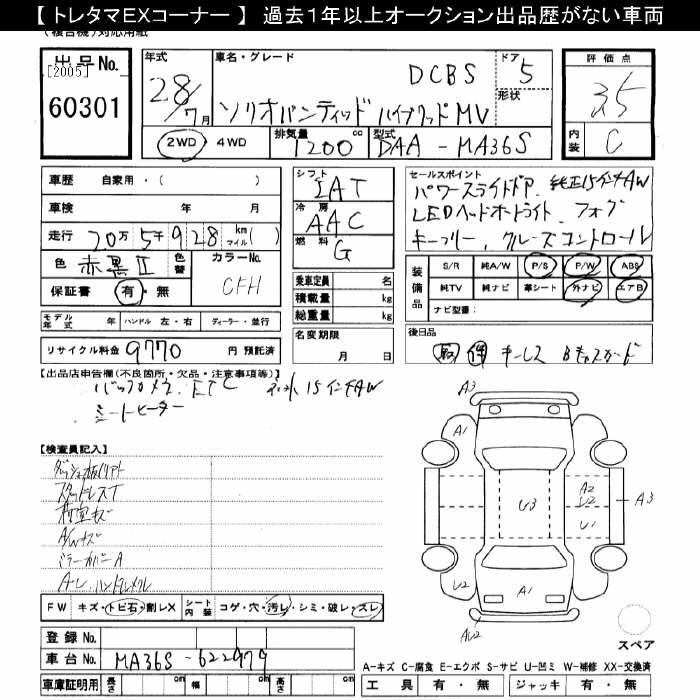 【 トレタマEXコーナー 】 過去1年以上オークション出品歴がない車両
(複合機)対応用紙
出品No.
[2005]
60301
年式
28/7月
車名・グレード
DCBS
ソリオバンディッド ハイブリッドMV
ドア
5
形状
評価点
3.5
内装
C
2WD ・ 4WD
排気量
1200cc
型式
DAA - MA36S
車歴 自家用・( )
車検 年 月
走行 20万 5千 928 km マイル( )
色 赤黒Ⅱ 色替
カラーNo. CFH
保証書 有・無
モデル年式 年 ハンドル 左・右 ディーラー・並行
リサイクル料金 9770 円 預託済
シフト
IAT
冷房
AAC
燃料
G
乗車定員 名
積載量 kg
総重量 kg
名変期限
月 日
セールスポイント
パワースライドドア. 純正15インチAW
LEDヘッドオートライト. フォグ
キーフリー. クルーズコントロール
装備品
S/R 純A/W P/S P/W ABS
純TV 純ナビ 革シート 外ナビ エアB
ナビ型番:
後日品
取 保 キーレス
【出品店申告欄(不良箇所・欠品・注意事項等)】
バックカメラ. ETC 15インチAW
シートヒーター
【検査員記入】
スタッドレスT
内室キズ
A/Wキズ
ミラーカバーA
F W キズ・トビ石・割レX シート内装 コゲ・穴・汚レ・シミ・破レ・スレ
登録 No.
車台 No. MA36S - 622979
車庫証明用 長さ cm 幅 cm 高さ cm
A3
A1
U3
A2
U2
U1
A3
U2
A1
AU2
スペア
A-キズ C-腐食 E-エクボ S-サビ U-凹ミ W-補修 XX-交換済
工具 有・無 ジャッキ 有・無